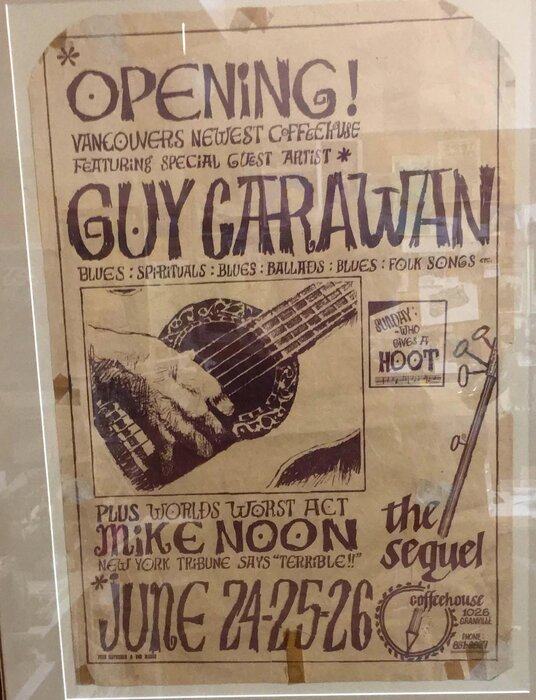 * OPENING!
VANCOUVERS NEWEST COFFEEHOUSE
FEATURING SPECIAL GUEST ARTIST *
GUY CARAWAN
BLUES : SPIRITUALS : BLUES : BALLADS : BLUES : FOLK SONGS ETC.
SUNDAY.
-WHO
GIVES A
HOOT
PLUS WORLDS WORST ACT
MIKE NOON
NEW YORK TRIBUNE SAYS "TERRIBLE!!"
*JUNE 24-25-26
the
sequel
coffeehouse
1026
GRANVILLE
PHONE